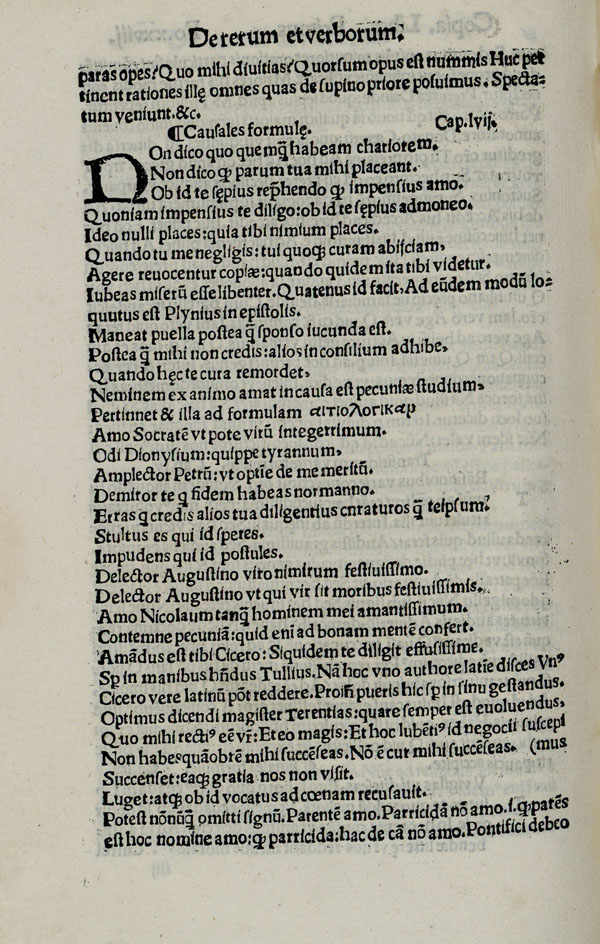 De rerum et verborum.
paras opes? Quo mihi diuitias? Quorsum opus est nummis Huc̄ per
tinent rationes illę omnes quas de supino priore posuimus. Specta-
tum veniunt. &c.
¶Causales formulę. Cap. lvij.
NOn dico quo quemq̄ habeam chariorem.
Non dico ꝙ parum tua mihi placeant.
Ob id te sępius rep̄hendo ꝙ impensius amo.
Quoniam impensius te diligo: ob id te sępius admoneo.
Ideo nulli places: quia tibi nimium places.
Quando tu me negligis: tui quoqꝫ curam abijciam,
Agere reuocentur copiæ: quando quidem ita tibi videtur.
Iubeas miserū esse libenter. Quatenus id facit, Ad eūdem modū lo-
quutus est Plynius in epistolis.
Maneat puella postea q̄ sponso iucunda est.
Postea q̄ mihi non credis: alios in consilium adhibe,
Quando hęc te cura remordet,
Neminem ex animo amat in causa est pecuniæ studium,
Pertinnet & illa ad formulam αιτιολογικαρ
Amo Socratē vt pote virū integerrimum.
Odi Dionysium: quippe tyrannum,
Amplector Petrū: vt optie de me meritū.
Demiror te q fidem habeas normanno.
Erras q credis alios tua diligentius cnraturos q̄ teipsum?
Stultus es qui id speres.
Impudens qui id postules.
Delector Augustino viro nimirum festiuissimo.
Delector Augustino vt qui vir sit moribus festiuissimis.
Amo Nicolaum tanq̄ hominem mei amantissimum.
Contemne pecuniā: quid eni ad bonam mentē confert.
Amādus est tibi Cicero: Siquidem te diligit effusissime.
Sp in manibus hn̄dus Tullius. Nā hoc vno authore latie disces Vnꝰ
Cicero vere latinū pōt reddere. pueris hic sp in sinu gestandus.
Optimus dicendi magister Terentias: quare semper est euoluendus,
Quo mihi rectiꝰ eē vr̄: Et eo magis: Et hoc lubētiꝰ id negocii suscepi
Non habes quāobrē mihi succēseas. Nō ē cur mihi succēseas. (mus
Succenset: eaqꝫ gratia nos non visit.
Luget: atqꝫ ob id vocatus ad cœnam recusauit.
Potest nōnūq̄ omitti signū. Parentē amo. Parricidā nō amo. i. ꝙ parēs
est hoc nomine amo: ꝙ parricida: hac de cā nō amo. Pontifici debeo